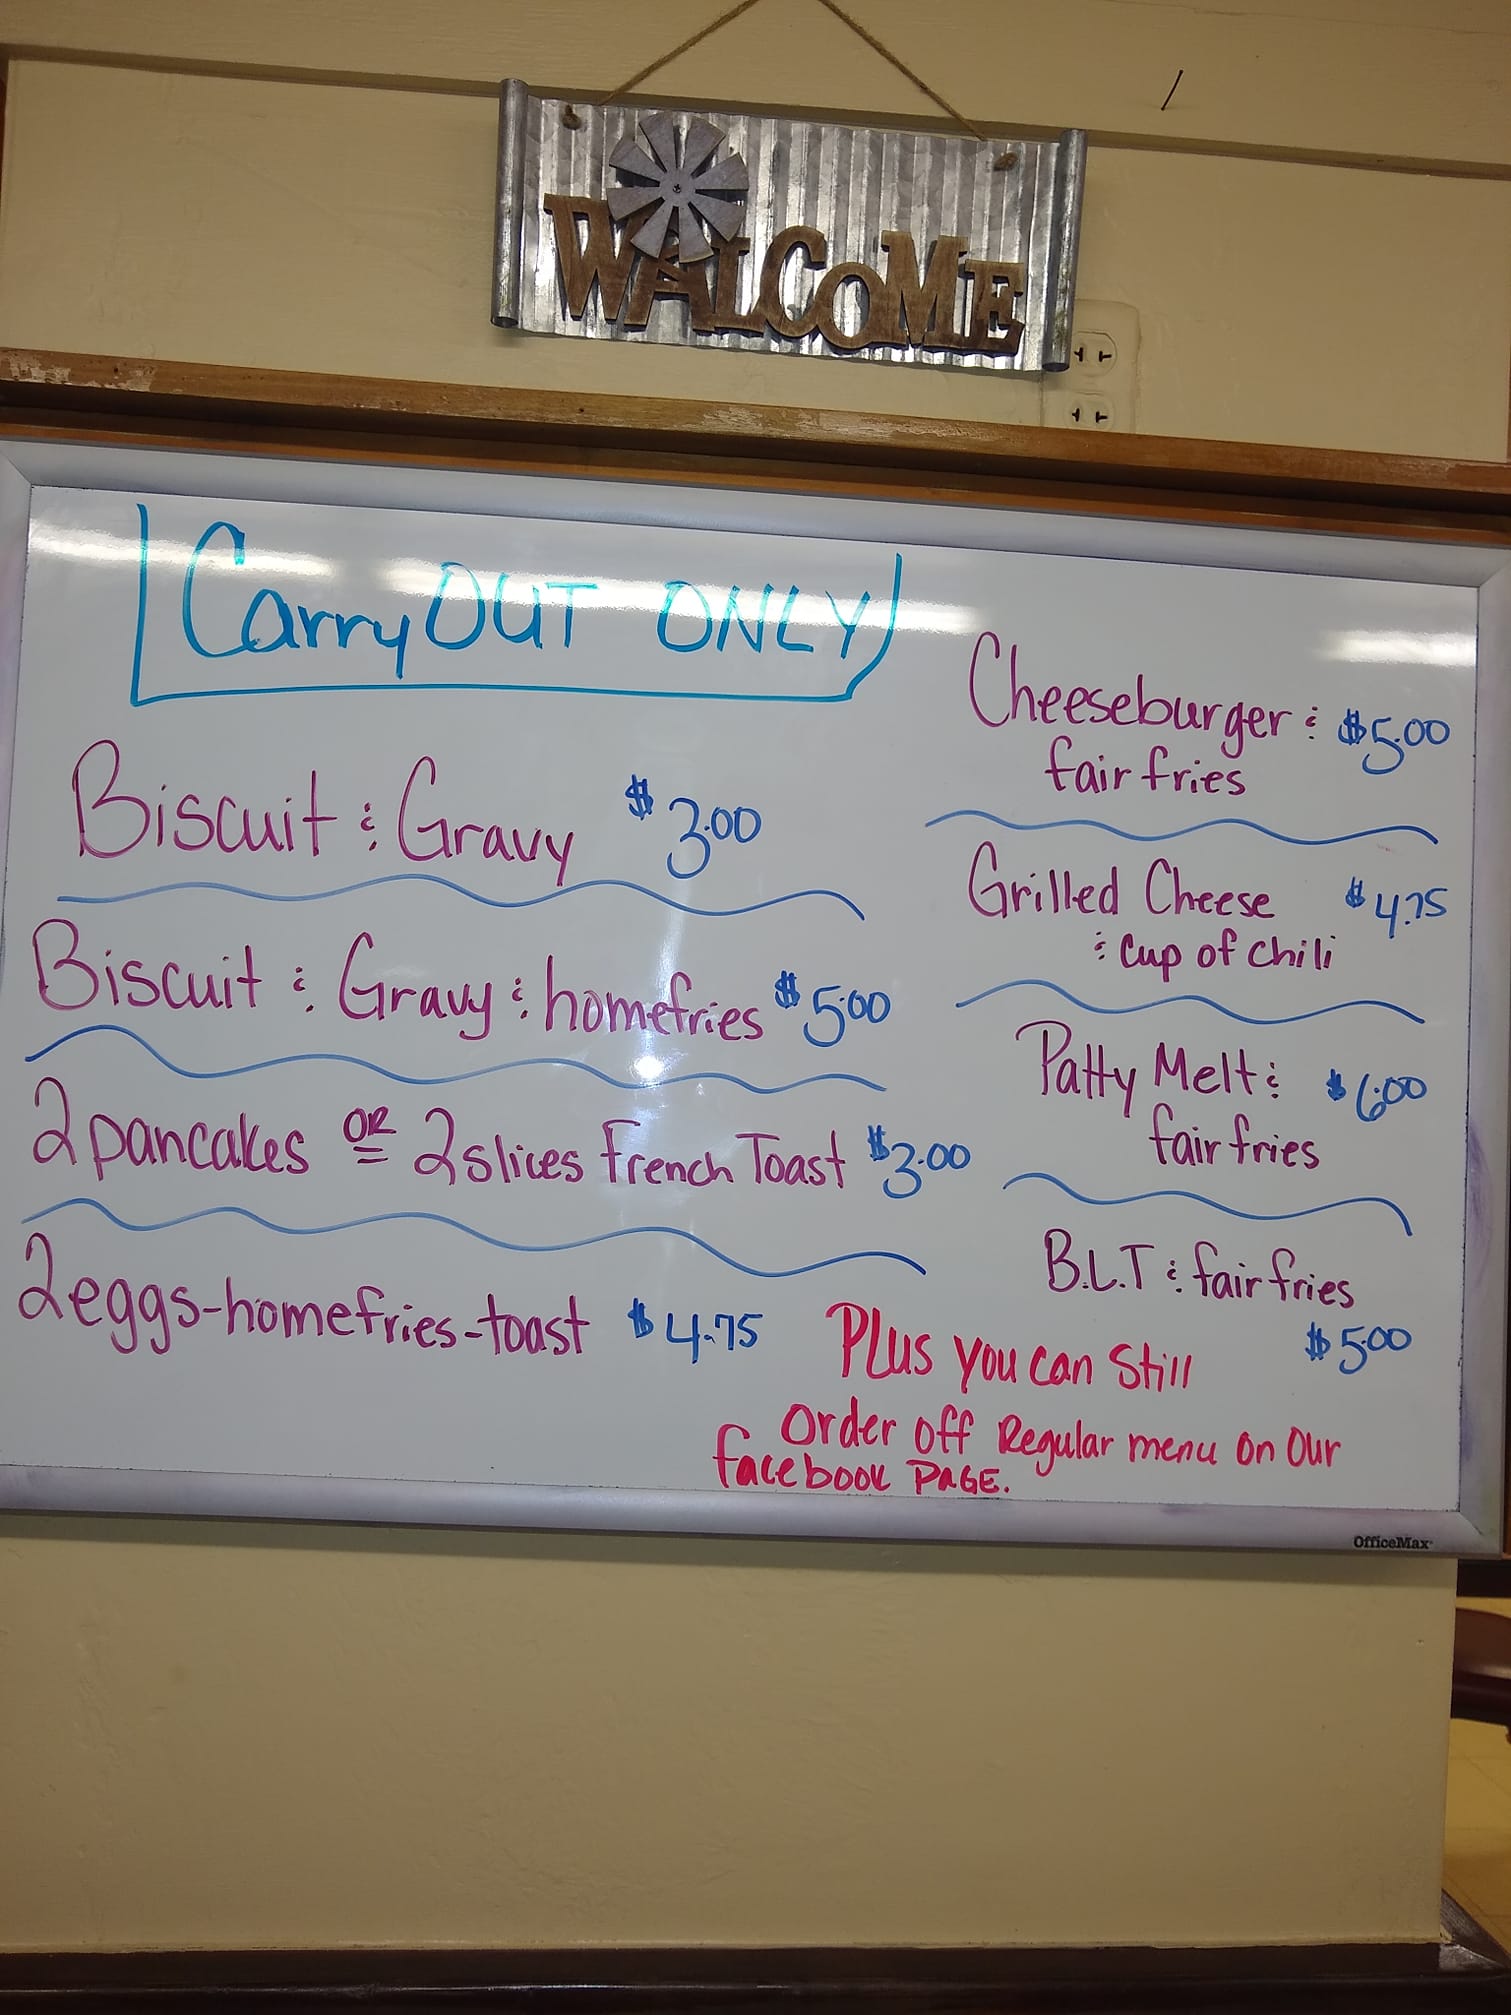 WALCOME
Carry OUT ONLY
Biscuit & Gravy $3.00
Biscuit & Gravy & homefries $5.00
2 pancakes OR 2 slices French Toast $3.00
2 eggs-homefries-toast $4.75
Cheeseburger & $5.00
fair fries
Grilled Cheese $4.75
& Cup of Chili
Patty Melt & $6.00
fair fries
B.L.T & fair fries
$5.00
Plus you can Still
Order off Regular menu on Our
facebook PAGE.
OfficeMax